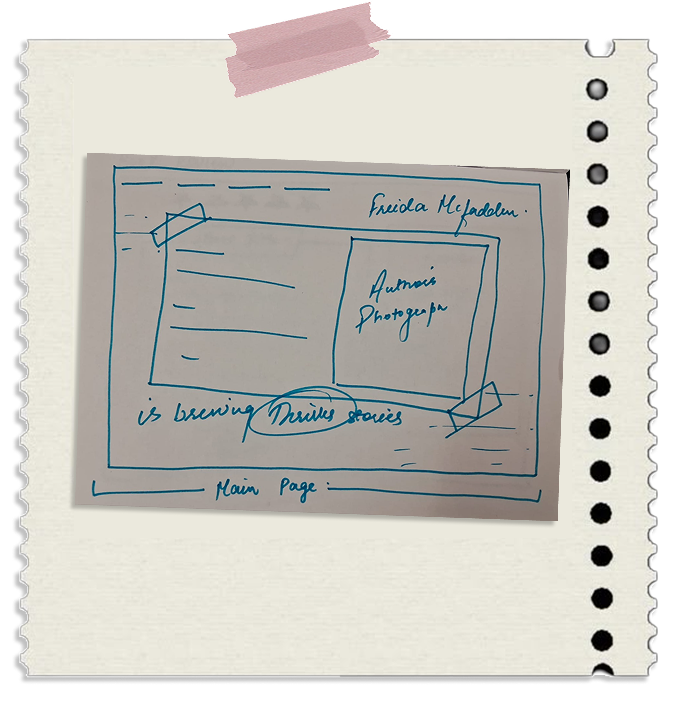 Freida Mcfadden.
Author's
Photograph
is brewing Thriller stories
Main Page: